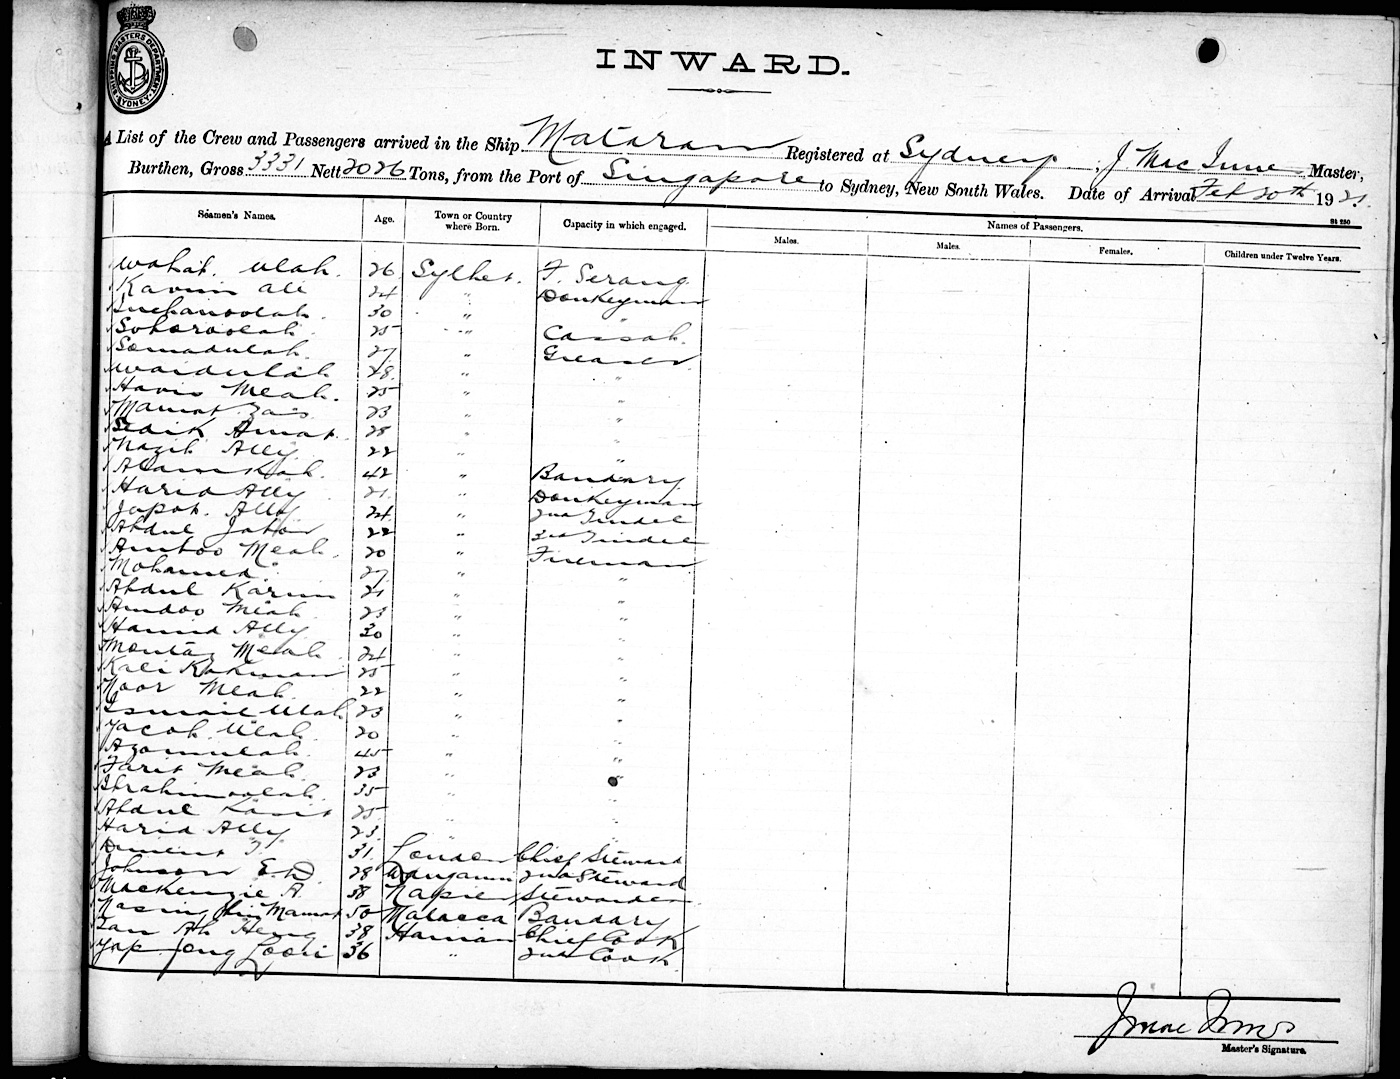 SHIPPING MASTERS DEPARTMENT SYDNEY
INWARD.
A List of the Crew and Passengers arrived in the Ship Mataram Registered at Sydney, J Mac Innes Master,
Burthen, Gross 3331 Nett 2026 Tons, from the Port of Singapore to Sydney, New South Wales. Date of Arrival Feb 20th 1921.
St 230
Seamen's Names. Age. Town or Country where Born. Capacity in which engaged. Names of Passengers.
Males. Males. Females. Children under Twelve Years.
Wahat. Ulah. 26 Sylhet. F. Serang
Kavim Ali 24 " Donkeyman
30 " "
25 " Cassab.
Somadulah. 27 " Greaser
Waidullah 28 " "
Meah. 25 " "
Mamat 23 " "
Sedik Amat 28 " "
Nazib Ally 22 " "
42 " Bandary
Harid Ally 21 " Donkeyman
Japot. Ally 24 " 2nd Tindel
Abdul Jabar 22 " 3rd Tindel
Amboo Meah. 20 " Fireman
Mohamed. 27 " "
Abdul Karim 21 " "
Amdoo Meah 23 " "
Hamid Ally 30 " "
Montaz Meah 24 " "
Rahman 25 " "
Noor Meah. 22 " "
Ismail Ulah 23 " "
Yacob. Ulah. 20 " "
Azomulah. 45 " "
Farit Meah. 23 " "
Ibrahimoolah. 35 " "
Abdul 25 " "
Harid Ally 23 " "
31 London Chief Steward
Johnson E.D 28 2nd Steward
MacKenzie A. 38 Napier Stewardess
Mamat 50 Malacca Bandary
Tan Ah Heng 38 Hainan Chief Cook
Yap Jong Looi 36 " 2nd Cook
J Mac Innes
Master's Signature.